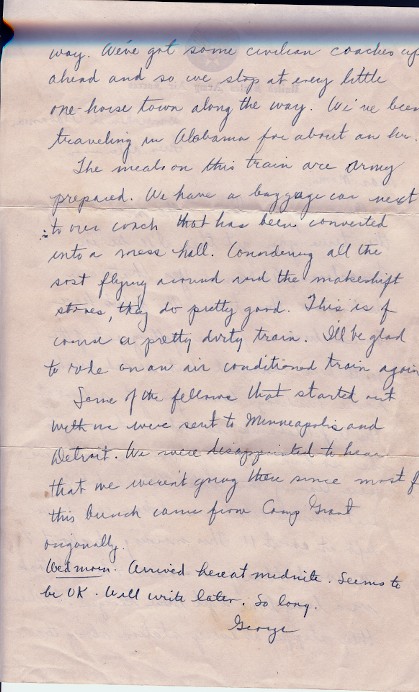 way. We've got some civilian coaches up
ahead and so we stop at every little
one-horse town along the way. We've been
traveling in Alabama for about an hr.
The meals on this train are Army
prepared. We have a baggage car next
to our coach that has been converted
into a mess hall. Considering all the
soot flying around and the makeshift
stoves, they do pretty good. This is of
course a pretty dirty train. I'll be glad
to ride on an air conditioned train again
Some of the fellows that started out
with us were sent to Minneapolis and
Detroit. We were disappointed to hear
that we weren't going there since most of
this bunch came from Camp Grant
originally.
Wed morn. Arrived here at midnite. Seems to
be OK. Will write later. So long.
George